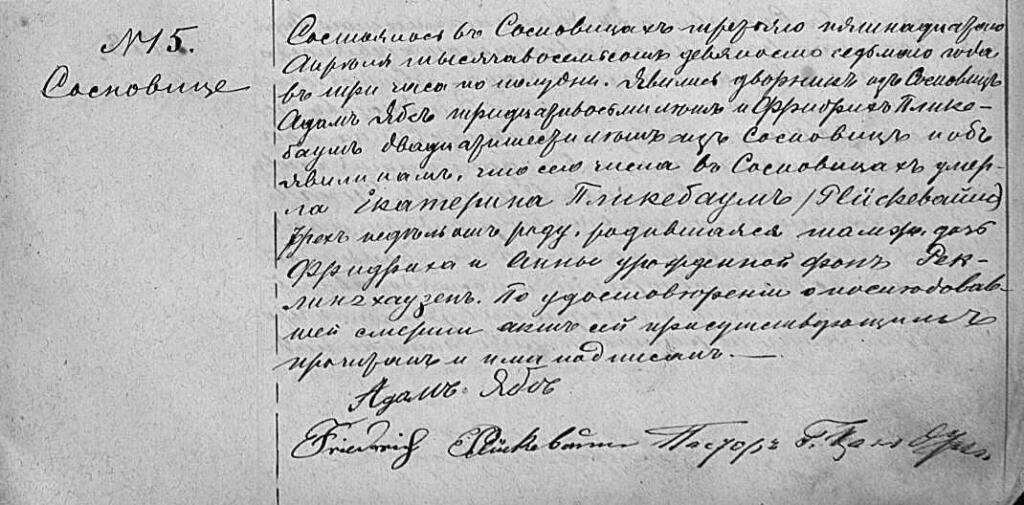 № 15.
Сосновице
Состоялось въ Сосновицахъ третьяго пятнадцатаго
Апрѣля тысяча восемьсотъ девяносто седьмаго года
въ три часа по полудни. Явились дворникъ изъ Сосновицъ
Адамъ Ябсъ тридцативосьмилѣтъ и Фридрихъ Плике-
баумъ двадцатишестилѣтъ изъ Сосновицъ и объ
явили намъ, что сего числа въ Сосновицахъ умер-
ла Екатерина Пликебаумъ (Plückebaum)
трехъ недѣль отъ роду, родившаяся тамже, дочь
Фридриха и Анны урожденной фонъ Рек-
лингхаузенъ. По удостовѣреніи о послѣдовав-
шей смерти актъ сей присутствующимъ
прочитанъ и ими подписанъ. —
Адамъ Ябсъ
Friedrich Plückebaum Пасторъ Г.